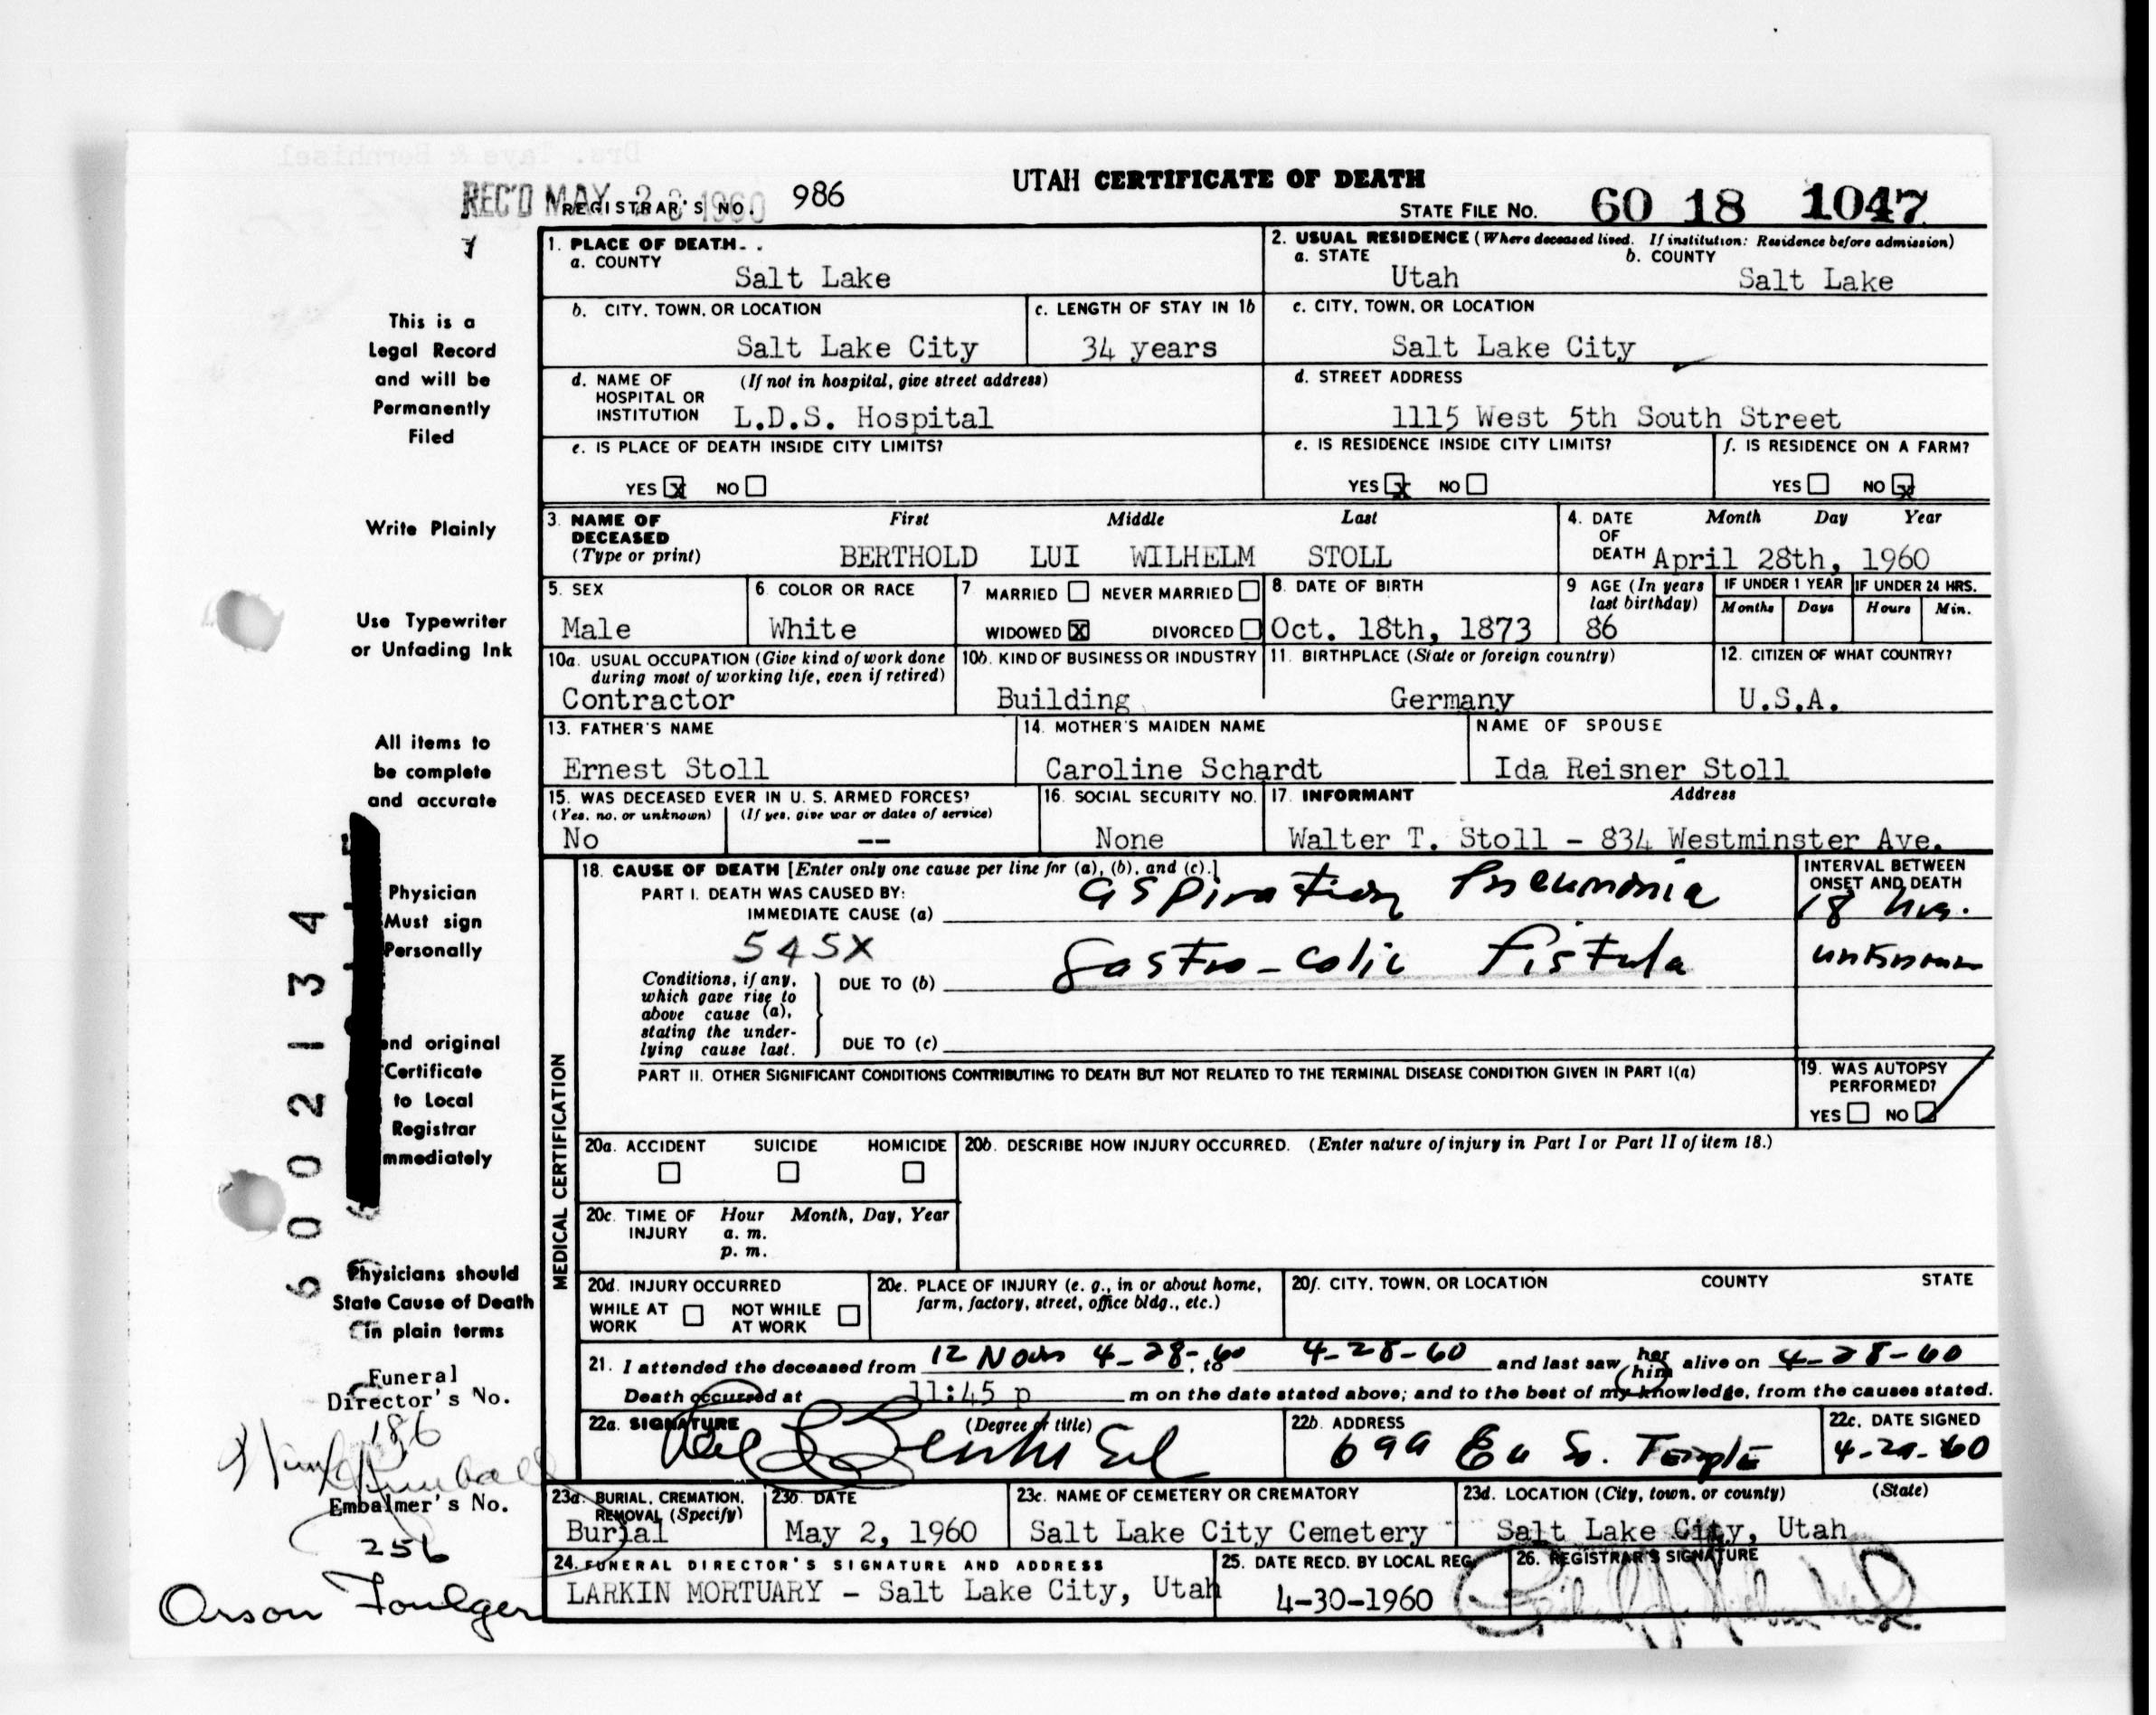 UTAH CERTIFICATE OF DEATH
REC'D MAY 1960
REGISTRAR'S NO. 986
STATE FILE NO. 60 18 1047
1. PLACE OF DEATH
a. COUNTY
Salt Lake
2. USUAL RESIDENCE (Where deceased lived. If institution: Residence before admission)
a. STATE b. COUNTY
Utah Salt Lake
b. CITY, TOWN, OR LOCATION
Salt Lake City
c. LENGTH OF STAY IN 1b
34 years
c. CITY, TOWN, OR LOCATION
Salt Lake City
d. NAME OF HOSPITAL OR INSTITUTION (If not in hospital, give street address)
L.D.S. Hospital
d. STREET ADDRESS
1115 West 5th South Street
e. IS PLACE OF DEATH INSIDE CITY LIMITS?
YES X NO
e. IS RESIDENCE INSIDE CITY LIMITS?
YES X NO
f. IS RESIDENCE ON A FARM?
YES NO X
3. NAME OF DECEASED (Type or print) First Middle Last
BERTHOLD LUI WILHELM STOLL
4. DATE OF DEATH Month Day Year
April 28th, 1960
5. SEX
Male
6. COLOR OR RACE
White
7 MARRIED NEVER MARRIED
WIDOWED X DIVORCED
8. DATE OF BIRTH
Oct. 18th, 1873
9 AGE (In years last birthday)
86
IF UNDER 1 YEAR IF UNDER 24 HRS.
Months Days Hours Min.
10a. USUAL OCCUPATION (Give kind of work done during most of working life, even if retired)
Contractor
10b. KIND OF BUSINESS OR INDUSTRY
Building
11. BIRTHPLACE (State or foreign country)
Germany
12. CITIZEN OF WHAT COUNTRY?
U.S.A.
13. FATHER'S NAME
Ernest Stoll
14. MOTHER'S MAIDEN NAME
Caroline Schardt
NAME OF SPOUSE
Ida Reisner Stoll
15. WAS DECEASED EVER IN U. S. ARMED FORCES?
(Yes, no, or unknown) (If yes, give war or dates of service)
No --
16. SOCIAL SECURITY NO.
None
17. INFORMANT Address
Walter T. Stoll - 834 Westminster Ave.
MEDICAL CERTIFICATION
18. CAUSE OF DEATH [Enter only one cause per line for (a), (b), and (c).]
PART I. DEATH WAS CAUSED BY:
IMMEDIATE CAUSE (a) aspiration Pneumonia
INTERVAL BETWEEN ONSET AND DEATH
18 hrs.
545X
Conditions, if any, which gave rise to above cause (a), stating the underlying cause last.
DUE TO (b) Gastro-colic fistula
unknown
DUE TO (c)
PART II. OTHER SIGNIFICANT CONDITIONS CONTRIBUTING TO DEATH BUT NOT RELATED TO THE TERMINAL DISEASE CONDITION GIVEN IN PART I(a)
19. WAS AUTOPSY PERFORMED?
YES NO
20a. ACCIDENT SUICIDE HOMICIDE
20b. DESCRIBE HOW INJURY OCCURRED. (Enter nature of injury in Part I or Part II of item 18.)
20c. TIME OF INJURY Hour Month, Day, Year
a. m.
p. m.
20d. INJURY OCCURRED
WHILE AT WORK NOT WHILE AT WORK
20e. PLACE OF INJURY (e. g., in or about home, farm, factory, street, office bldg., etc.)
20f. CITY, TOWN, OR LOCATION COUNTY STATE
21. I attended the deceased from 12 Noon 4-28-60, to 4-28-60 and last saw her him alive on 4-28-60
Death occurred at 11:45 p m on the date stated above; and to the best of my knowledge, from the causes stated.
22a. SIGNATURE (Degree or title)
22b. ADDRESS
699 Ea So. Temple
22c. DATE SIGNED
4-29-60
23a. BURIAL, CREMATION, REMOVAL (Specify)
Burial
23b. DATE
May 2, 1960
23c. NAME OF CEMETERY OR CREMATORY
Salt Lake City Cemetery
23d. LOCATION (City, town, or county) (State)
Salt Lake City, Utah
24. FUNERAL DIRECTOR'S SIGNATURE AND ADDRESS
LARKIN MORTUARY - Salt Lake City, Utah
25. DATE RECD. BY LOCAL REG.
4-30-1960
26. REGISTRAR'S SIGNATURE
This is a
Legal Record
and will be
Permanently
Filed
Write Plainly
Use Typewriter
or Unfading Ink
All items to
be complete
and accurate
Physician
Must sign
Personally
end original
Certificate
to Local
Registrar
mmediately
Physicians should
State Cause of Death
in plain terms
6002134
Funeral
Director's No.
186
Kimball
Embalmer's No.
256
Orson Foulger